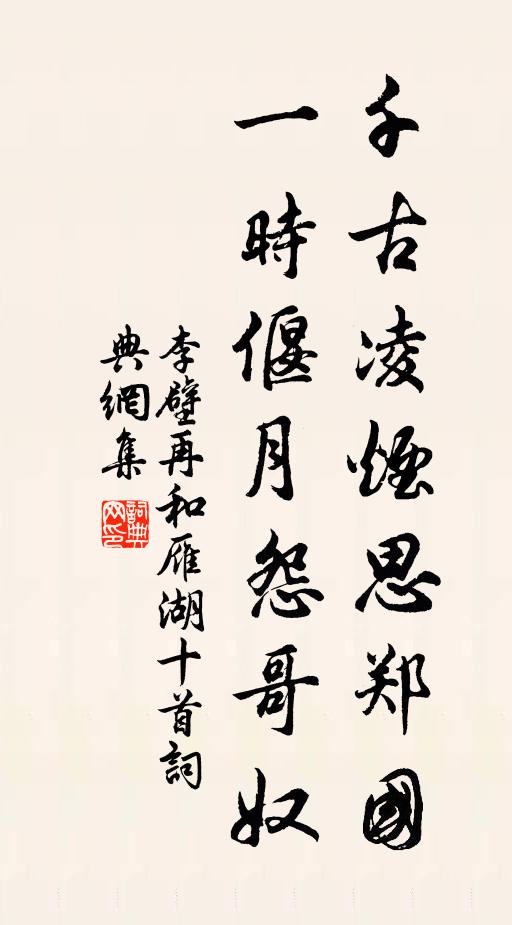 千古凌煙思郑國
一時偃月怨哥奴
李壁再和雁湖十首詞
典網集
詞典
网印